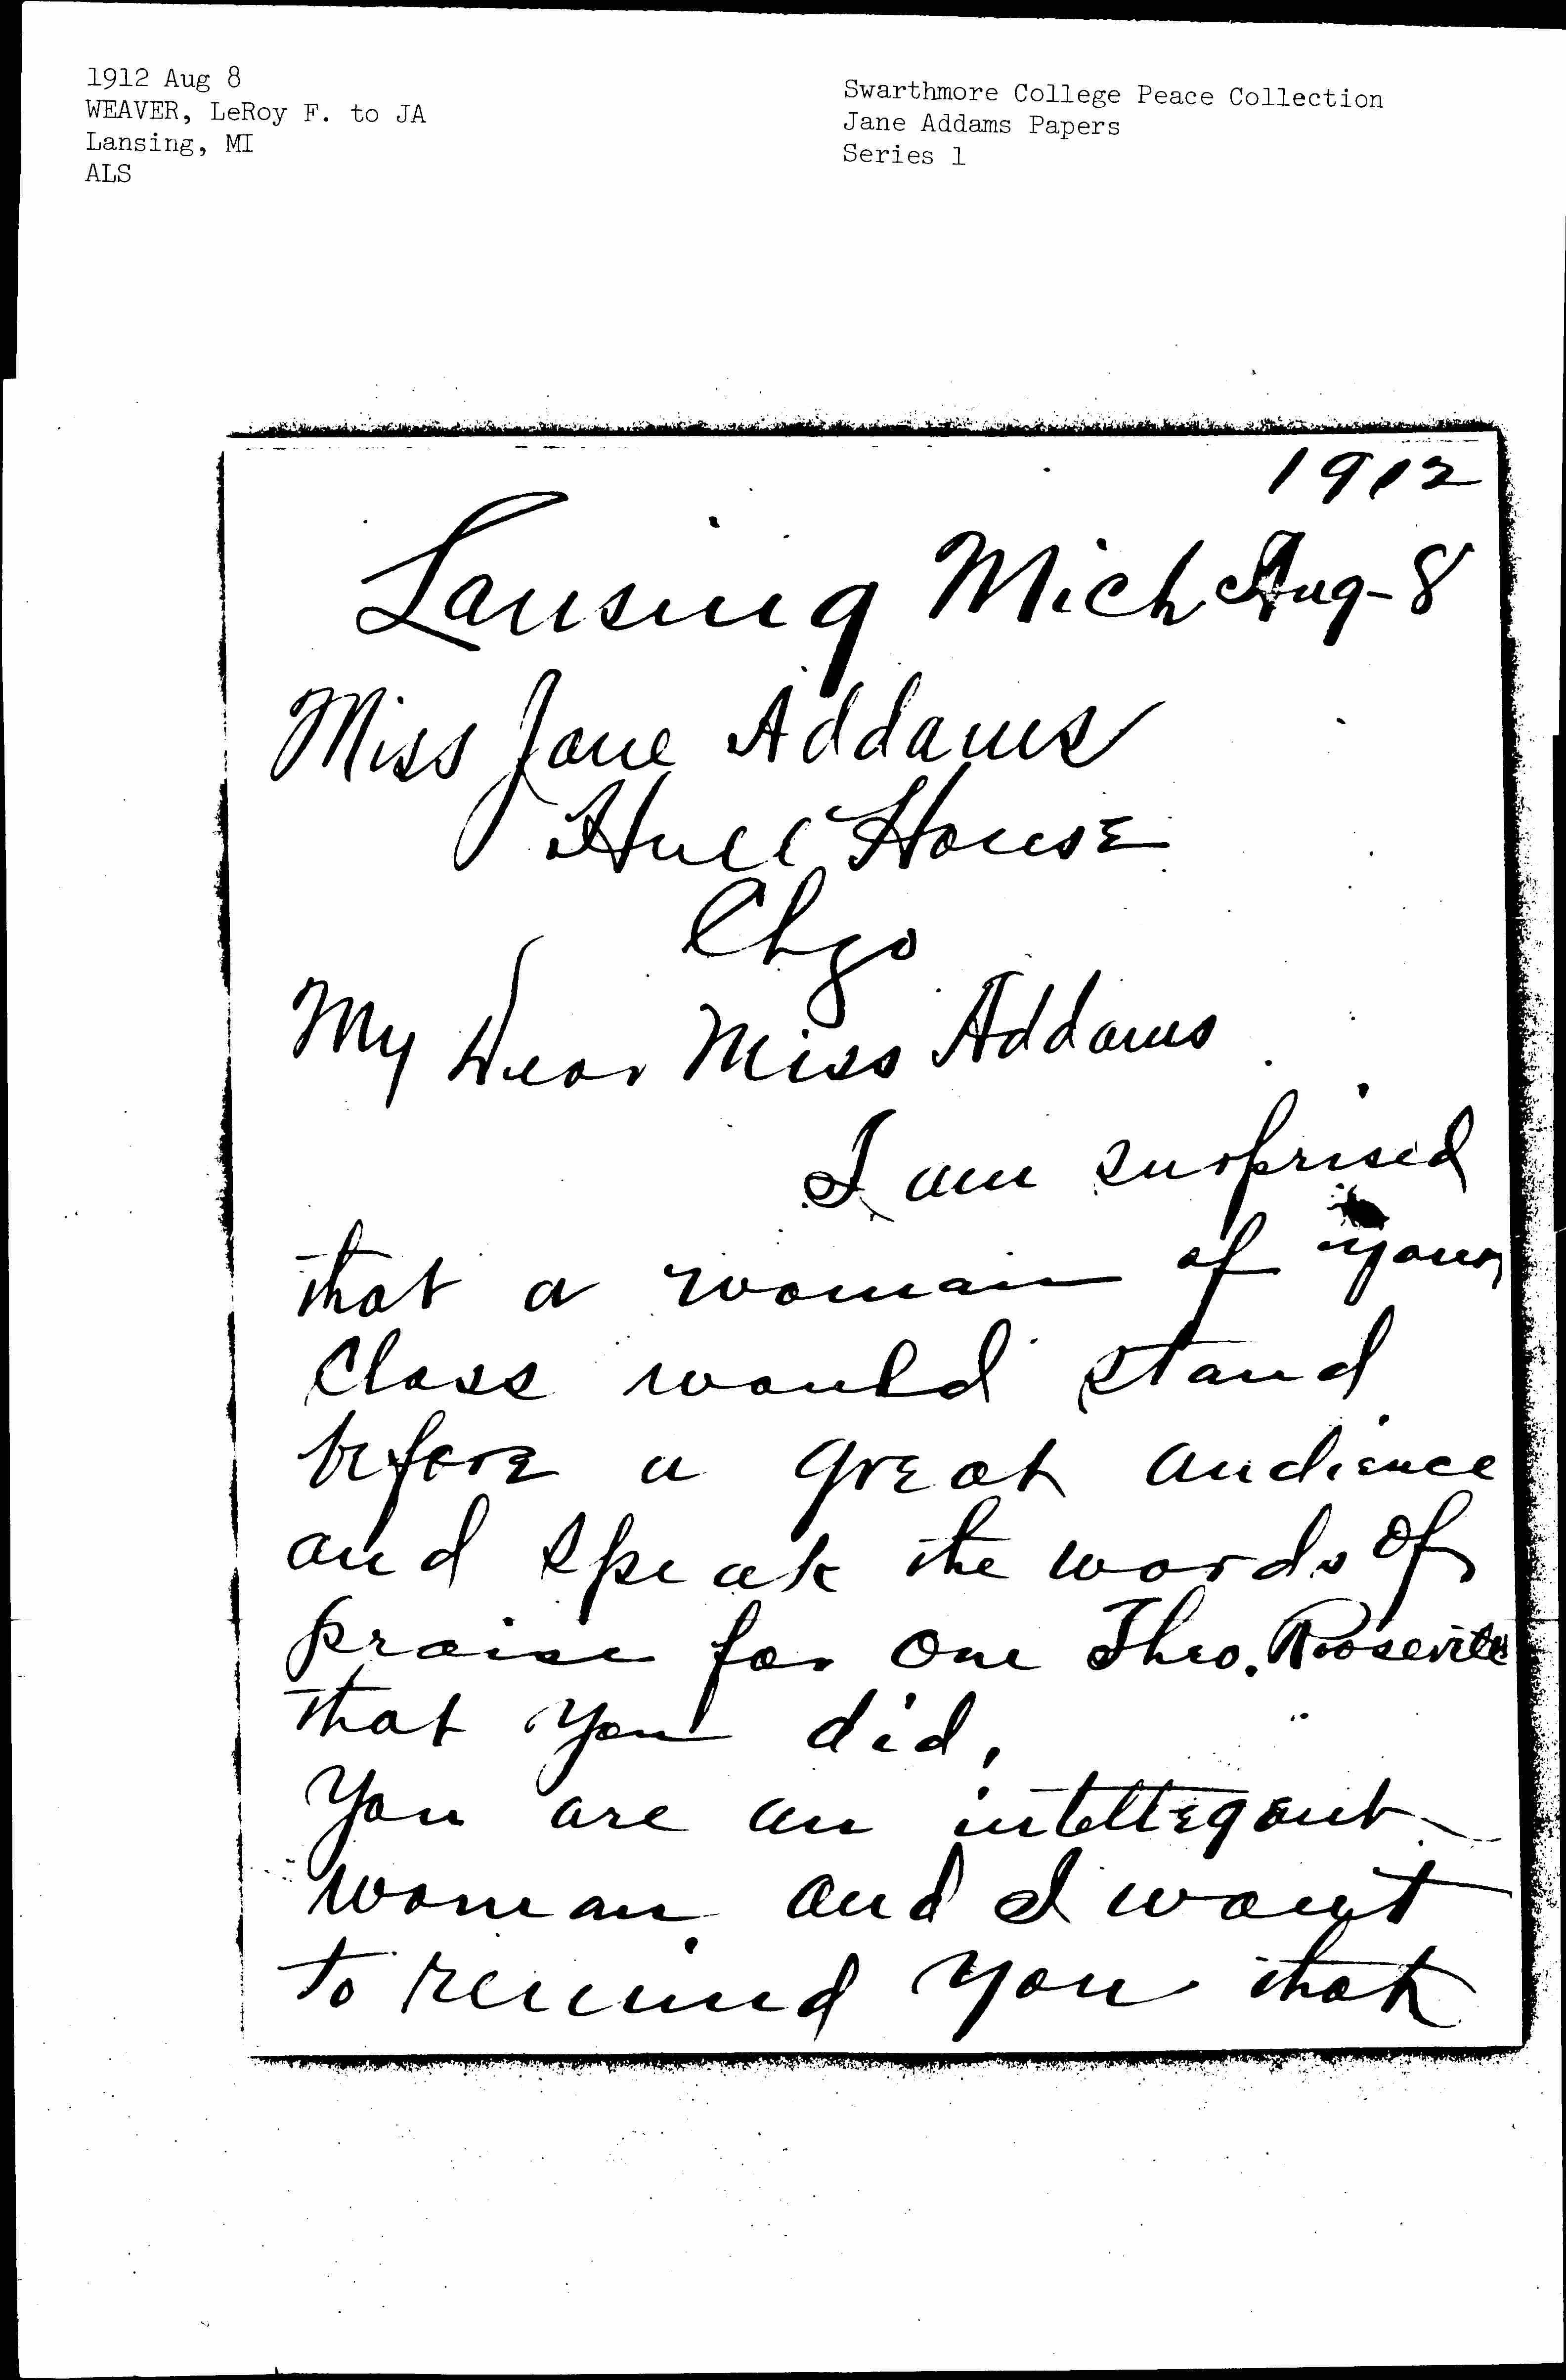 1912 Aug 8
WEAVER, LeRoy F. to JA
Lansing, MI
ALS
Swarthmore College Peace Collection
Jane Addams Papers
Series 1
1912
Lansing Mich Aug-8
Miss Jane Addams
Hull House
Chgo
My Dear Miss Addams
I am surprised
that a woman of your
Class would stand
before a great audience
and speak the words of
praise for one Theo. Roosevelt
that you did.
You are an intellegent
woman and I want
to remind you that